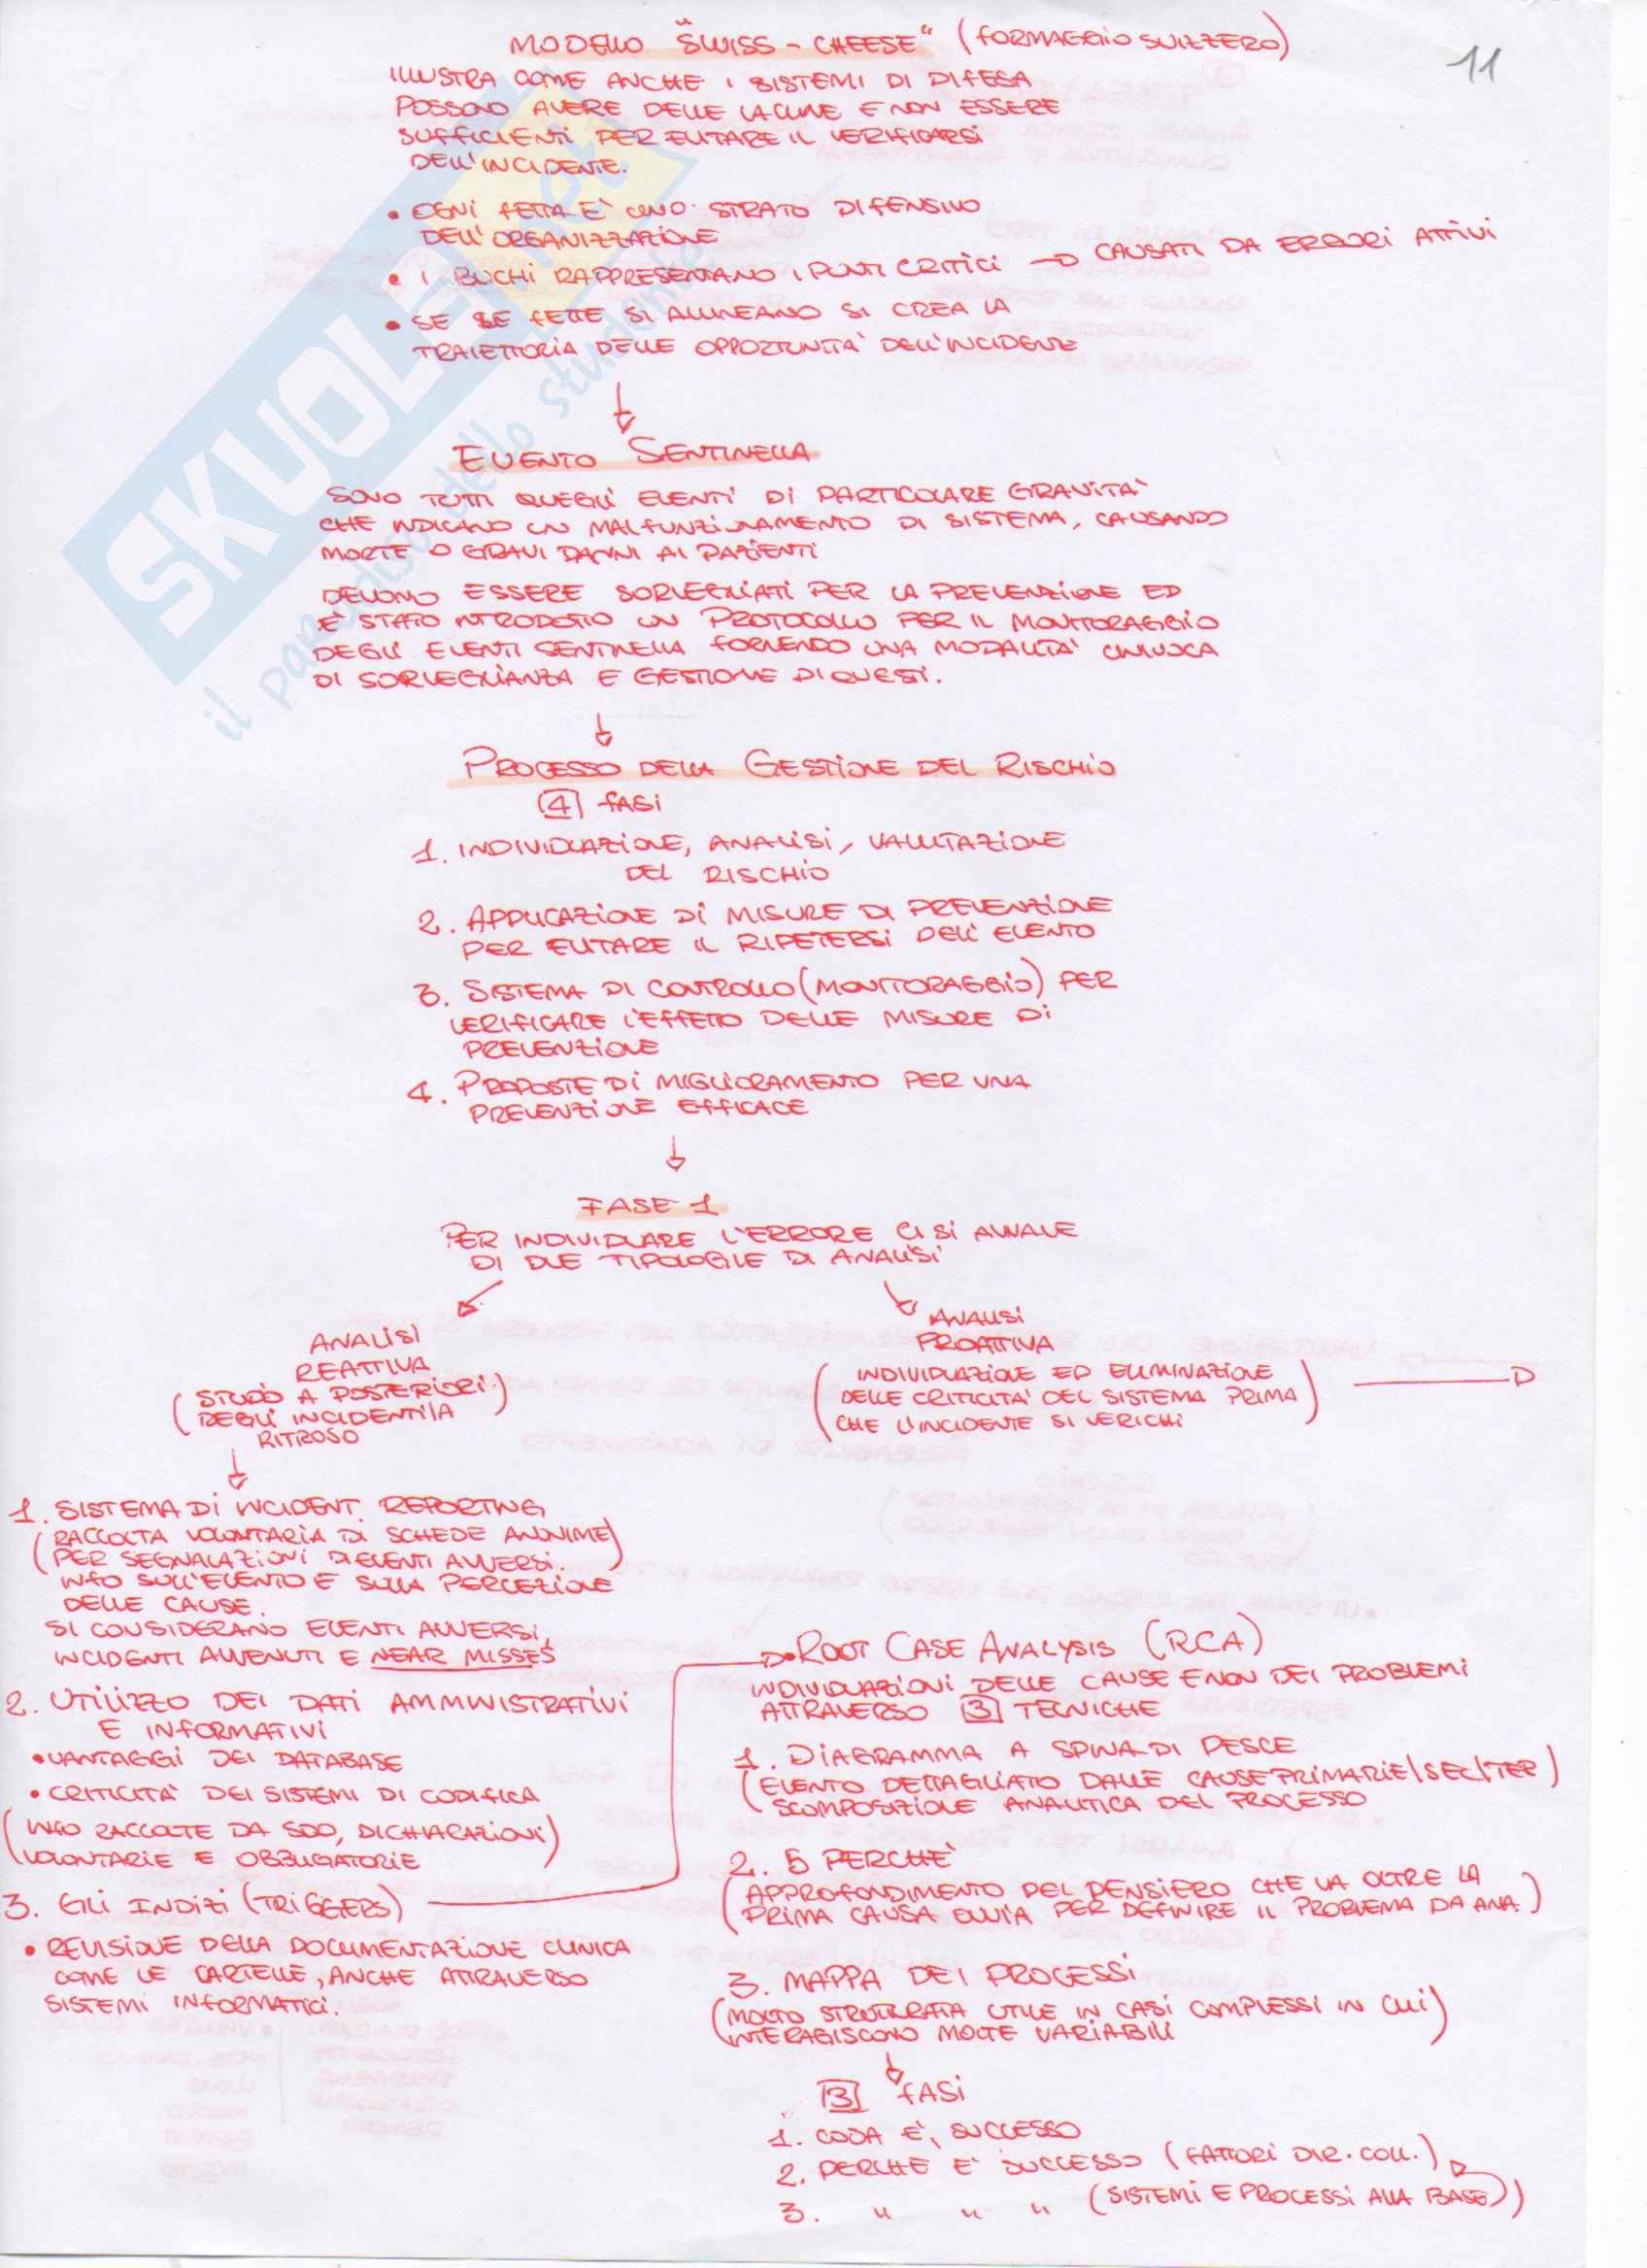 11
MODELLO "SWISS - CHEESE" (FORMAGGIO SVIZZERO)
ILLUSTRA COME ANCHE I SISTEMI DI DIFESA
POSSONO AVERE DELLE LACUNE E NON ESSERE
SUFFICIENTI PER EVITARE IL VERIFICARSI
DELL'INCIDENTE.
• OGNI FETTA E' UNO STRATO DIFENSIVO
DELL'ORGANIZZAZIONE
• I BUCHI RAPPRESENTANO I PUNTI CRITICI → CAUSATI DA ERRORI ATTIVI
• SE SE FETTE SI ALLINEANO SI CREA LA
TRAIETTORIA DELLE OPPORTUNITA' DELL'INCIDENTE
↓
EVENTO SENTINELLA
SONO TUTTI QUEGLI EVENTI DI PARTICOLARE GRAVITA'
CHE INDICANO UN MALFUNZIONAMENTO DI SISTEMA, CAUSANDO
MORTE O GRAVI DANNI AI PAZIENTI
DEVONO ESSERE SORVEGLIATI PER LA PREVENZIONE ED
E' STATO INTRODOTTO UN PROTOCOLLO PER IL MONITORAGGIO
DEGLI EVENTI SENTINELLA FORNENDO UNA MODALITA' UNIVOCA
DI SORVEGLIANZA E GESTIONE DI QUESTI.
↓
PROCESSO DELLA GESTIONE DEL RISCHIO
4 FASI
1. INDIVIDUAZIONE, ANALISI, VALUTAZIONE
DEL RISCHIO
2. APPLICAZIONE DI MISURE DI PREVENZIONE
PER EVITARE IL RIPETERSI DELL'EVENTO
3. SISTEMA DI CONTROLLO (MONITORAGGIO) PER
VERIFICARE L'EFFETTO DELLE MISURE DI
PREVENZIONE
4. PROPOSTE DI MIGLIORAMENTO PER UNA
PREVENZIONE EFFICACE
↓
FASE 1
PER INDIVIDUARE L'ERRORE CI SI AVVALE
DI DUE TIPOLOGIE DI ANALISI
ANALISI
REATTIVA
(STUDIO A POSTERIORI
DEGLI INCIDENTI/A
RITROSO)
↓
1. SISTEMA DI INCIDENT REPORTING
(RACCOLTA VOLONTARIA DI SCHEDE ANONIME
PER SEGNALAZIONI DI EVENTI AVVERSI.)
INFO SULL'EVENTO E SULLA PERCEZIONE
DELLE CAUSE.
SI CONSIDERANO EVENTI AVVERSI,
INCIDENTI AVVENUTI E NEAR MISSES
2. UTILIZZO DEI DATI AMMINISTRATIVI
E INFORMATIVI
• VANTAGGI DEI DATABASE
• CRITICITA' DEI SISTEMI DI CODIFICA
(INFO RACCOLTE DA SDO, DICHIARAZIONI
VOLONTARIE E OBBLIGATORIE)
3. GLI INDIZI (TRIGGERS)
• REVISIONE DELLA DOCUMENTAZIONE CLINICA
COME LE CARTELLE, ANCHE ATTRAVERSO
SISTEMI INFORMATICI.
ANALISI
PROATTIVA
(INDIVIDUAZIONE ED ELIMINAZIONE
DELLE CRITICITA' DEL SISTEMA PRIMA
CHE L'INCIDENTE SI VERICHI) →
• ROOT CASE ANALYSIS (RCA)
INDIVIDUAZIONI DELLE CAUSE E NON DEI PROBLEMI
ATTRAVERSO 3 TECNICHE
1. DIAGRAMMA A SPINA DI PESCE
(EVENTO DETTAGLIATO DALLE CAUSE PRIMARIE/SEC/TER
SCOMPOSIZIONE ANALITICA DEL PROCESSO)
2. 5 PERCHE'
(APPROFONDIMENTO DEL PENSIERO CHE VA OLTRE LA
PRIMA CAUSA OVVIA PER DEFINIRE IL PROBLEMA DA ANA.)
3. MAPPA DEI PROCESSI
(MOLTO STRUTTURATA UTILE IN CASI COMPLESSI IN CUI
INTERAGISCONO MOLTE VARIABILI)
↓
3 FASI
1. COSA E' SUCCESSO
2. PERCHE E' SUCCESSO (FATTORI DIR. COLL.)
3. " " " (SISTEMI E PROCESSI ALLA BASE)
SKUOLA.net
il paradiso dello studente